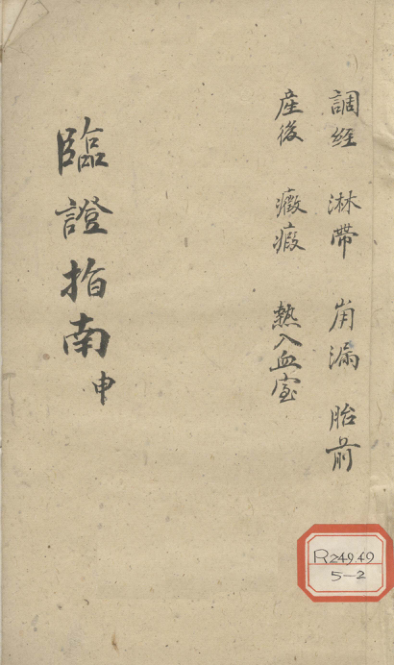 調經 淋帶 崩漏 胎前
産後 癥瘕 熱入血室
臨證指南申
R24949
5-2